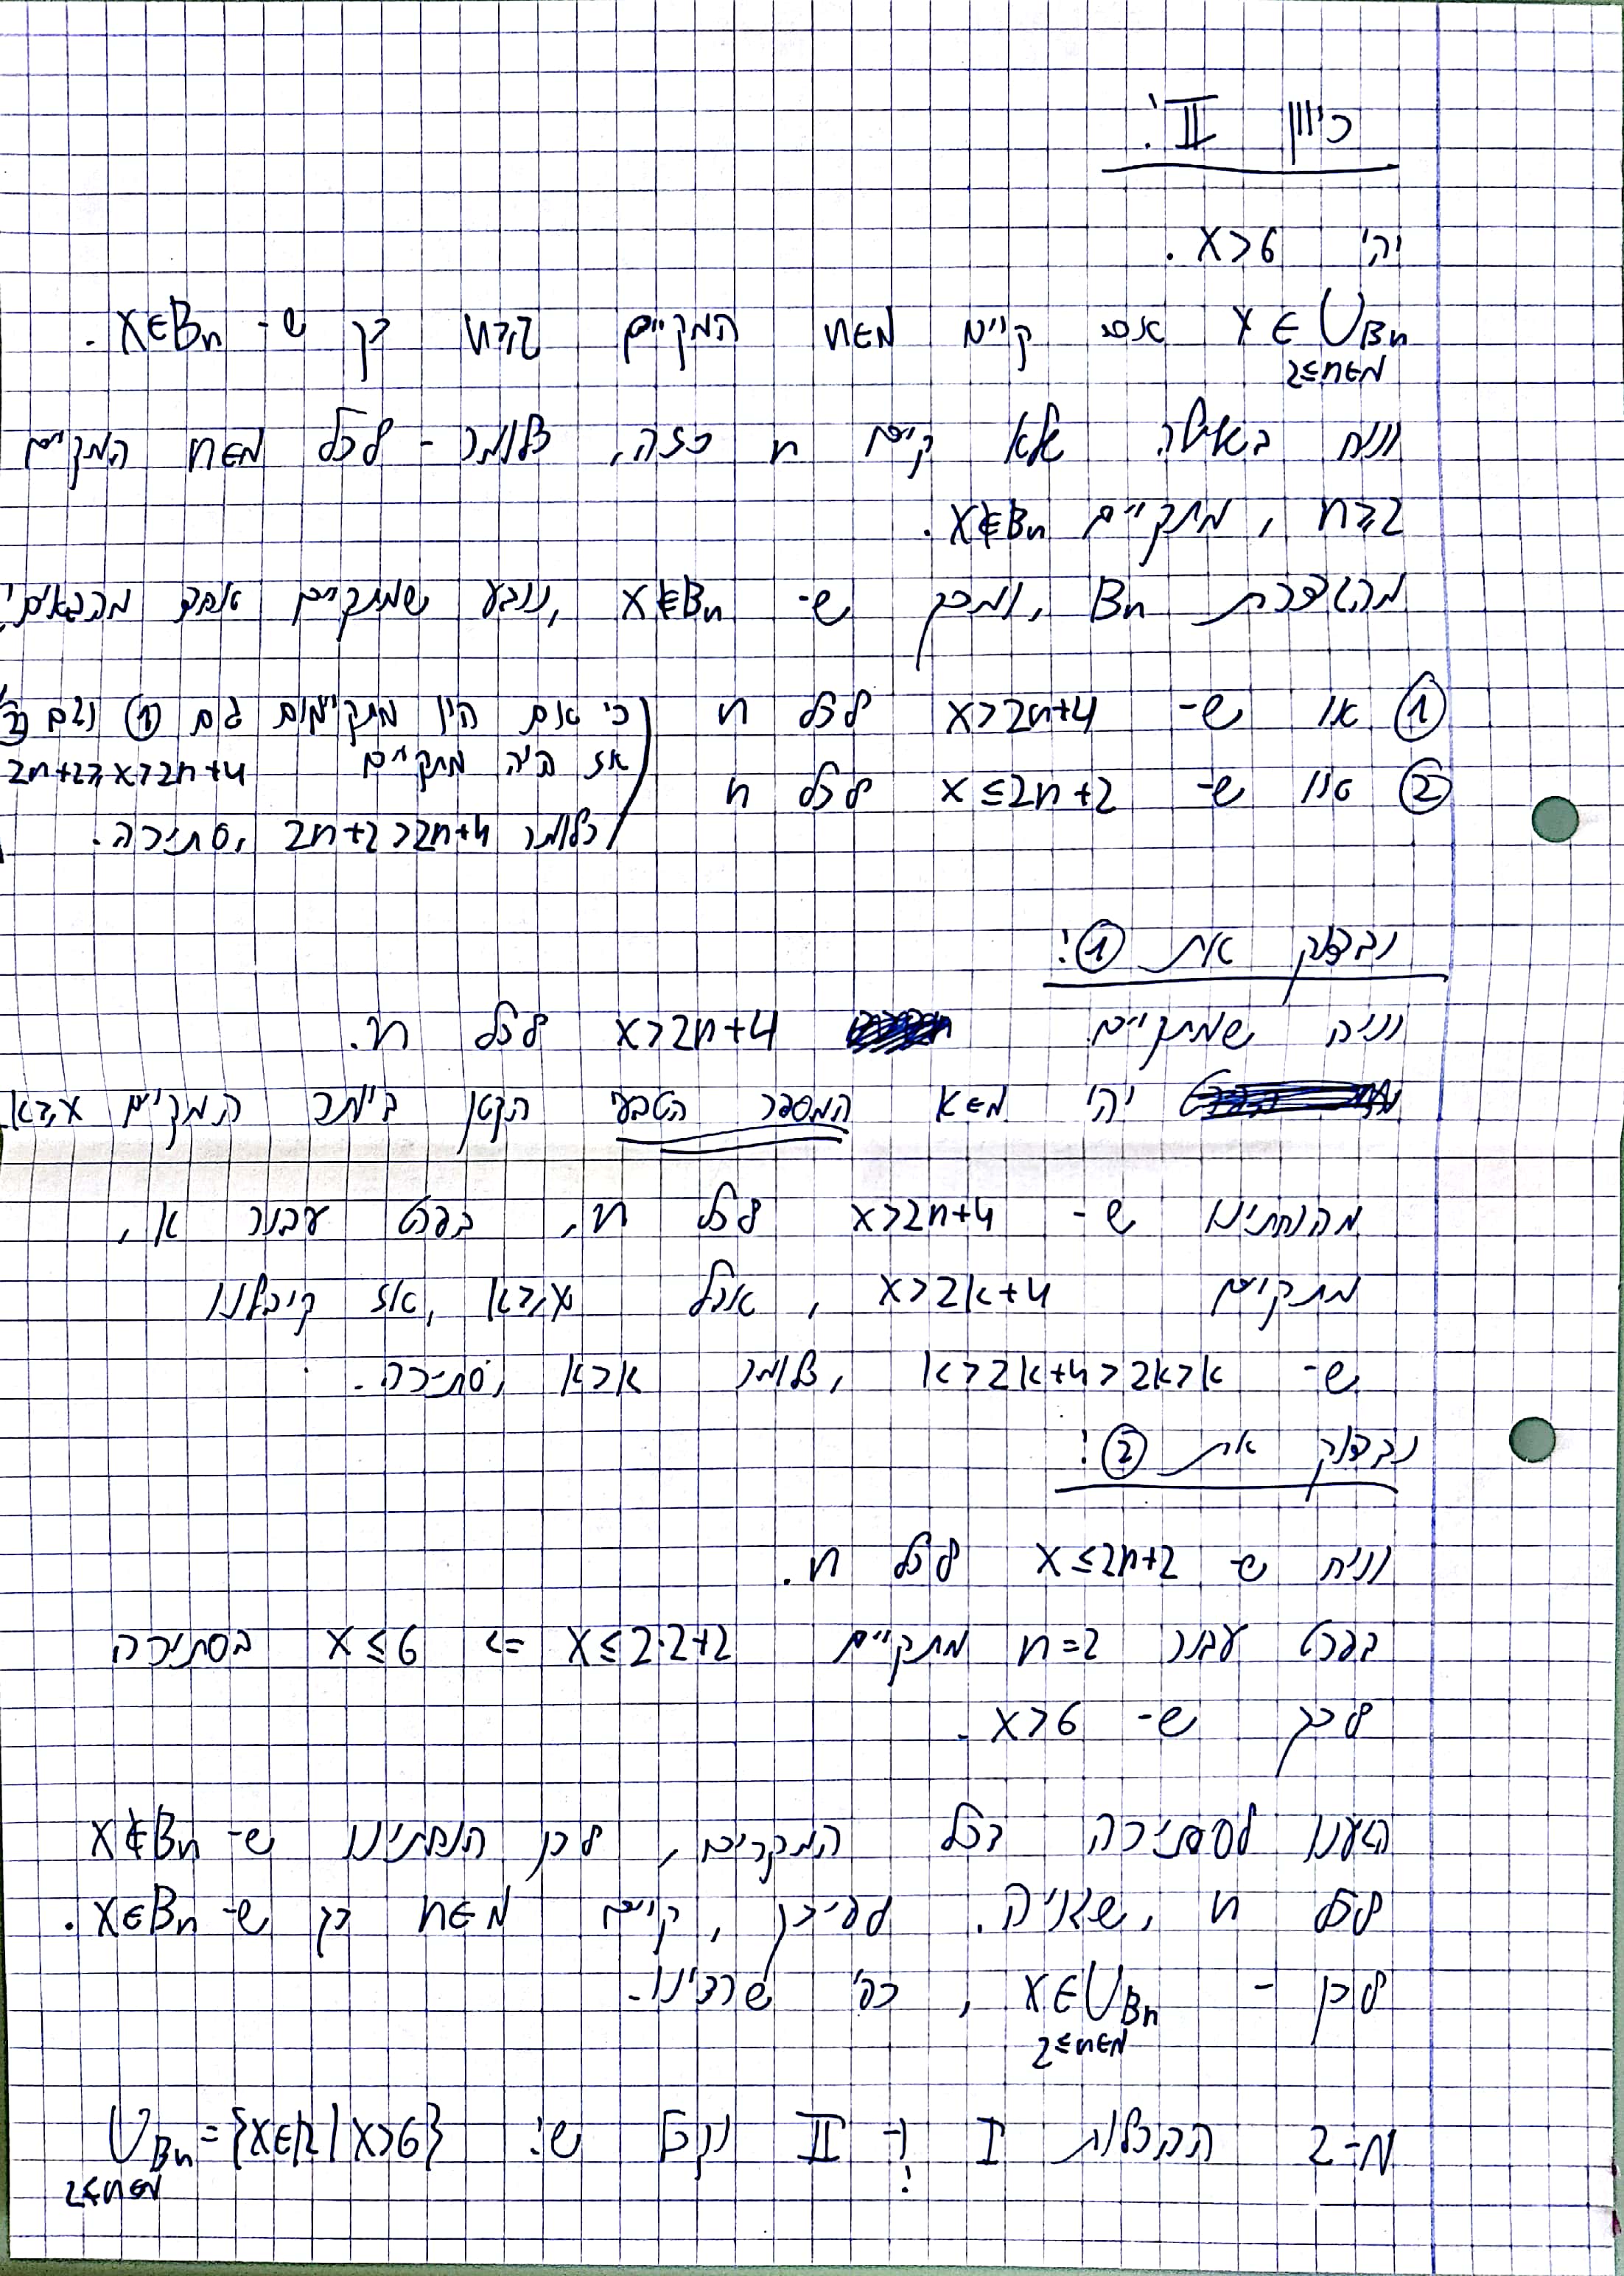 כיוון II:
יהי x>6.
x ∈ ∪Bn 2≤n∈N אמ"מ קיים n∈N המקיים n≥2 כך ש- x∈Bn.
נניח בשלילה שלא קיים n כזה, כלומר - לכל n∈N המקיים
n≥2, מתקיים x∉Bn.
מהגדרת Bn, ומכך ש- x∉Bn, נובע שמתקיים אחד מהבאים:
① או ש- x>2n+4 לכל n (כי אם היו מתקיימות גם ① וגם ②
אז היה מתקיים 2n+2≥x>2n+4
② או ש- x≤2n+2 לכל n
כלומר 2n+2>2n+4, סתירה.
נבדוק את ①:
נניח שמתקיים x>2n+4 לכל n.
יהי k∈N המספר הטבעי הקטן ביותר המקיים k≥x.
מהנחתינו ש- x>2n+4 לכל n, בפרט עבור k,
מתקיים x>2k+4, אבל k≥x, אז קיבלנו
ש- k>2k+4>2k>k, כלומר k>k, סתירה.
נבדוק את ②:
נניח ש- x≤2n+2 לכל n.
בפרט עבור n=2 מתקיים x≤2·2+2 => x≤6 בסתירה
לכך ש- x>6.
הגענו לסתירה בכל המקרים, לכן הנחתינו ש- x∉Bn
לכל n, שגויה. לפיכך, קיים n∈N כך ש- x∈Bn.
לכן - x∈∪Bn 2≤n∈N, כפי שרצינו.
מ-2 ההכלות I ו- II נקבל ש: ∪Bn={x∈R|x>6} 2≤n∈N